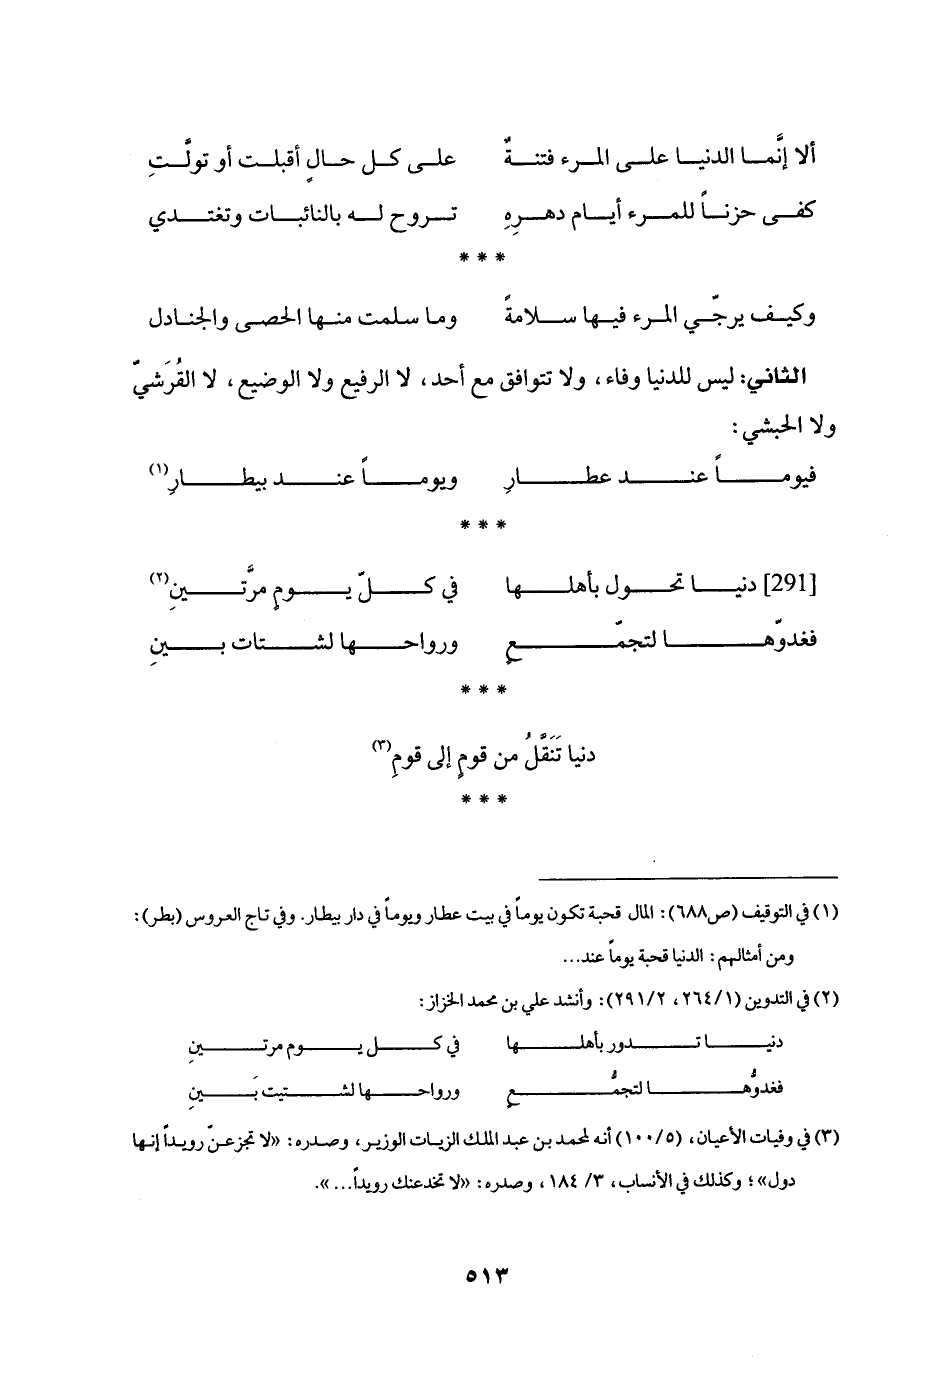 ألا إنَّما الدنيا على المرء فتنةٌ على كل حالٍ أقبلت أو تولَّتِ
كفى حزناً للمرء أيام دهرِهِ تروح له بالنائبات وتغتدي
* * *
وكيف يرجّي المرء فيها سلامةً وما سلمت منها الحصى والجنادل
الثاني: ليس للدنيا وفاء، ولا تتوافق مع أحد، لا الرفيع ولا الوضيع، لا القُرَشيّ
ولا الحبشي:
فيوماً عند عطارِ ويوماً عند بيطارِ(١)
* * *
[291] دنيا تحول بأهلها في كلّ يومٍ مرَّتينِ(٢)
فغدوّها لتجمّعٍ ورواحها لشتات بينِ
* * *
دنيا تَنَقَّلُ من قومٍ إلى قومِ(٣)
* * *
(١) في التوقيف (ص٦٨٨): المال قحبة تكون يوماً في بيت عطار ويوماً في دار بيطار. وفي تاج العروس (بطر):
ومن أمثالهم: الدنيا قحبة يوماً عند...
(٢) في التدوين (٢٦٤/١، ٢٩١/٢): وأنشد علي بن محمد الخزاز:
دنيا تدور بأهلها في كل يوم مرتينِ
فغدوُّها لتجمُّعٍ ورواحها لشتيت بَينِ
(٣) في وفيات الأعيان، (١٠٠/٥) أنه لمحمد بن عبد الملك الزيات الوزير، وصدره: «لا تجزعنّ رويداً إنها
دول»؛ وكذلك في الأنساب، ٣/ ١٨٤، وصدره: «لا تخدعنك رويداً...».
٥١٣